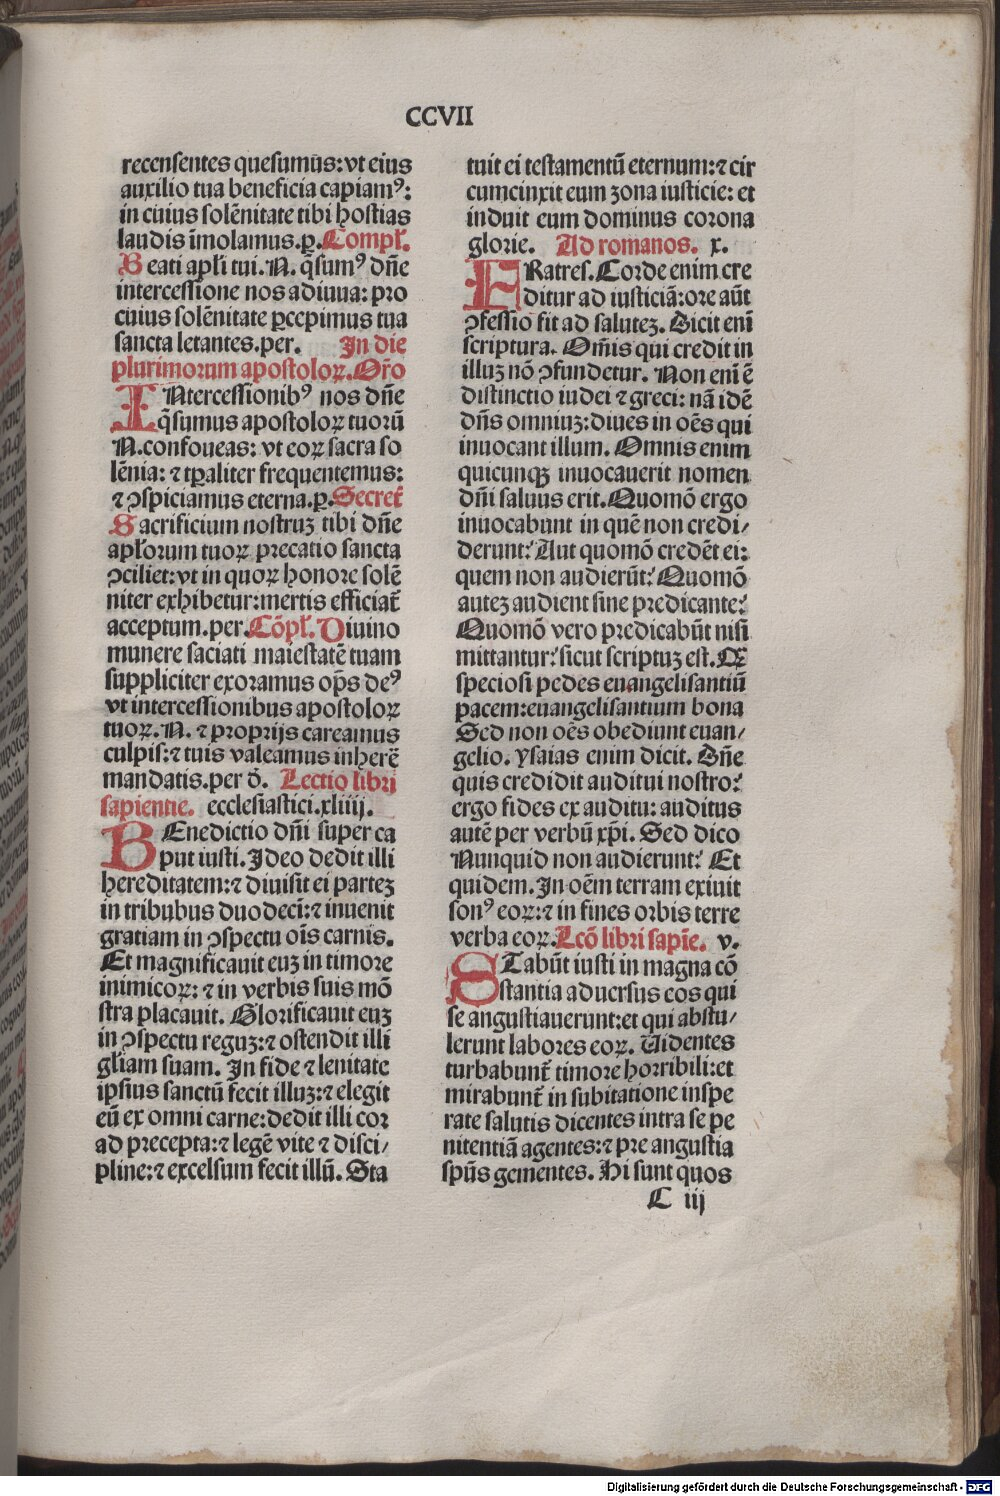 CCVII
recensentes quesumūs: vt eius
auxilio tua beneficia capiamꝰ:
in cuius solēnitate tibi hostias
laudis īmolamus. ꝑ. Compl̵.
Beati apl̵i tui. N. q̄sumꝰ dn̄e
intercessione nos adiuua: pro
cuius solēnitate ꝑcepimus tua
sancta letantes. per. In die
plurimorum apostoloꝝ. Or̄o
INtercessionibꝰ nos dn̄e
q̄sumus apostoloꝝ tuorū
N. confoueas: vt eoꝝ sacra so
lēnia: ⁊ tꝑaliter frequentemus:
⁊ ꝯspiciamus eterna. ꝑ. Secret̄
Sacrificium nostruꝫ tibi dn̄e
apl̵orum tuoꝝ precatio sancta
ꝯciliet: vt in quoꝝ honore solē
niter exhibetur: mertis efficiat̄
acceptum. per. Cōpl̵. Diuino
munere saciati maiestatē tuam
suppliciter exoramus op̄s deꝰ
vt intercessionibus apostoloꝝ
tuoꝝ. N. ⁊ proprijs careamus
culpis: ⁊ tuis valeamus inherē
mandatis. per d̄. Lectio libri
sapientie. ecclesiastici. xliiij.
BEnedictio dn̄i super ca
put iusti. Ideo dedit illi
hereditatem: ⁊ diuisit ei parteꝫ
in tribubus duodecī: ⁊ inuenit
gratiam in ꝯspectu oīs carnis.
Et magnificauit euꝫ in timore
inimicoꝝ: ⁊ in verbis suis mō
stra placauit. Glorificauit euꝫ
in ꝯspectu reguꝫ: ⁊ ostendit illi
gl̄iam suam. In fide ⁊ lenitate
ipsius sanctū fecit illuꝫ: ⁊ elegit
eū ex omni carne: dedit illi cor
ad precepta: ⁊ legē vite ⁊ disci/
pline: ⁊ excelsum fecit illū. Sta
tuit ei testamentū eternum: ⁊ cir
cumcinxit eum zona iusticie: et
induit eum dominus corona
glorie. Ad romanos. x.
FRatres. Corde enim cre
ditur ad iusticiā: ore aūt
ꝯfessio fit ad saluteꝫ. Dicit enī
scriptura. Om̄is qui credit in
illuꝫ nō ꝯfundetur. Non enī ē
distinctio iudei ⁊ greci: nā idē
dn̄s omniuꝫ: diues in oēs qui
inuocant illum. Omnis enim
quicunqꝫ inuocauerit nomen
dn̄i saluus erit. Quomō ergo
inuocabunt in quē non credi/
derunt? Aut quomō credēt ei:
quem non audierūt? Quomō
auteꝫ audient sine predicante?
Quomō vero predicabūt nisi
mittantur? sicut scriptuꝫ est. Ꝙ
speciosi pedes euangelisantiū
pacem: euangelisantium bona
Sed non oēs obediunt euan/
gelio. ysaias enim dicit. Dn̄e
quis credidit auditui nostro?
ergo fides ex auditu: auditus
autē per verbū xp̄i. Sed dico
Nunquid non audierunt? Et
quidem. In oēm terram exiuit
sonꝰ eoꝝ: ⁊ in fines orbis terre
verba eoꝝ. Lcō libri sapīe. v.
STabūt iusti in magna cō
stantia aduersus eos qui
se angustiauerunt: et qui abstu/
lerunt labores eoꝝ. Uidentes
turbabunt̄ timore horribili: et
mirabunt̄ in subitatione inspe
rate salutis dicentes intra se pe
nitentiā agentes: ⁊ pre angustia
sp̄us gementes. Hi sunt quos
C iij
Digitalisierung gefördert durch die Deutsche Forschungsgemeinschaft - DFG